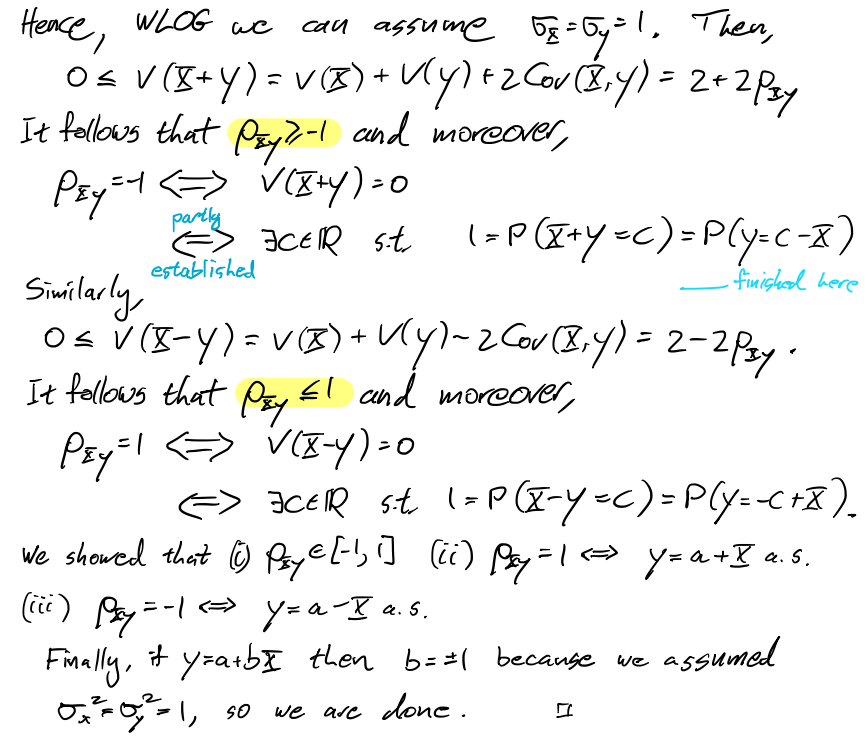 Hence, WLOG we can assume σ_X = σ_Y = 1. Then,
0 ≤ V(X+Y) = V(X) + V(Y) + 2Cov(X,Y) = 2 + 2ρ_XY
It follows that ρ_XY ≥ -1 and moreover,
ρ_XY = -1 ⟺ V(X+Y) = 0
partly
⟺ ∃c∈ℝ s.t. 1 = P(X+Y = c) = P(Y = c - X)
established
finished here
Similarly,
0 ≤ V(X-Y) = V(X) + V(Y) - 2Cov(X,Y) = 2 - 2ρ_XY.
It follows that ρ_XY ≤ 1 and moreover,
ρ_XY = 1 ⟺ V(X-Y) = 0
⟺ ∃c∈ℝ s.t. 1 = P(X-Y = c) = P(Y = -c + X).
We showed that (i) ρ_XY ∈ [-1, 1] (ii) ρ_XY = 1 ⟺ Y = a + X a.s.
(iii) ρ_XY = -1 ⟺ Y = a - X a.s.
Finally, if Y = a+bX then b = ±1 because we assumed
σ_X² = σ_Y² = 1, so we are done. □